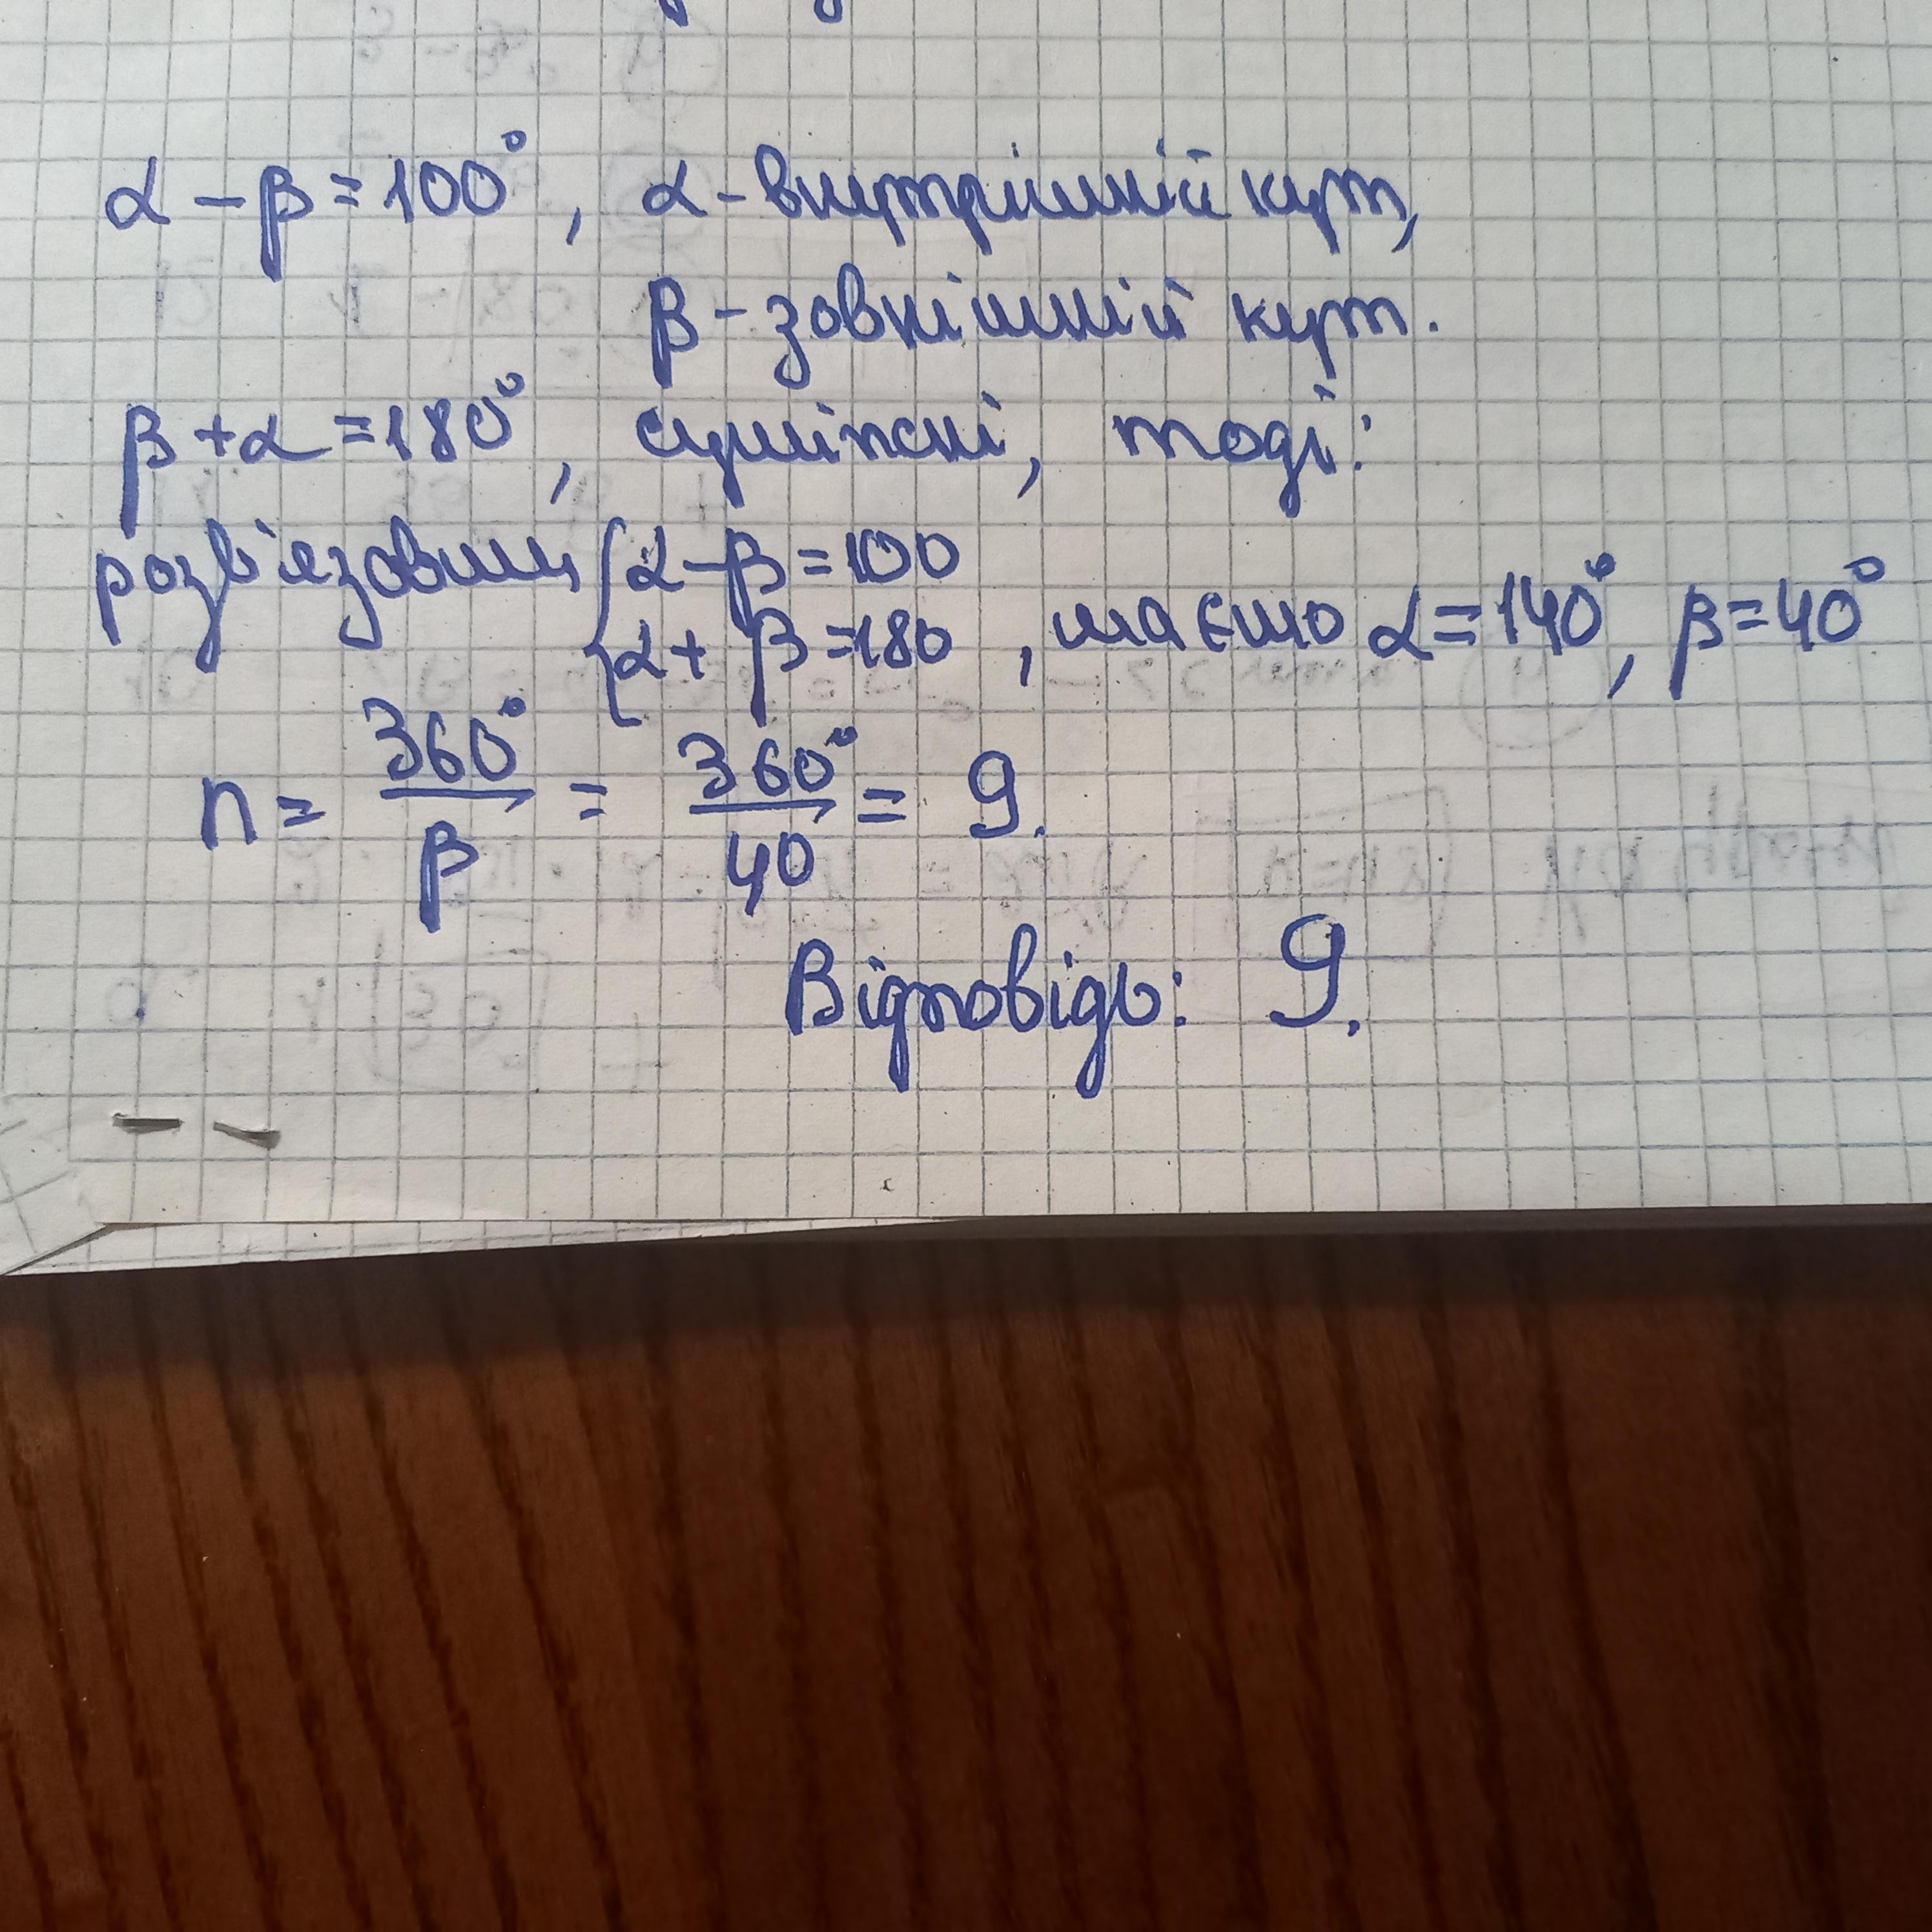 α - β = 100°, α - внутрішній кут,
β - зовнішній кут.
β + α = 180°, суміжні, тоді:
розв'язавши { α - β = 100
α + β = 180 , маємо α = 140°, β = 40°
n = 360°/β = 360°/40 = 9.
Відповідь: 9.